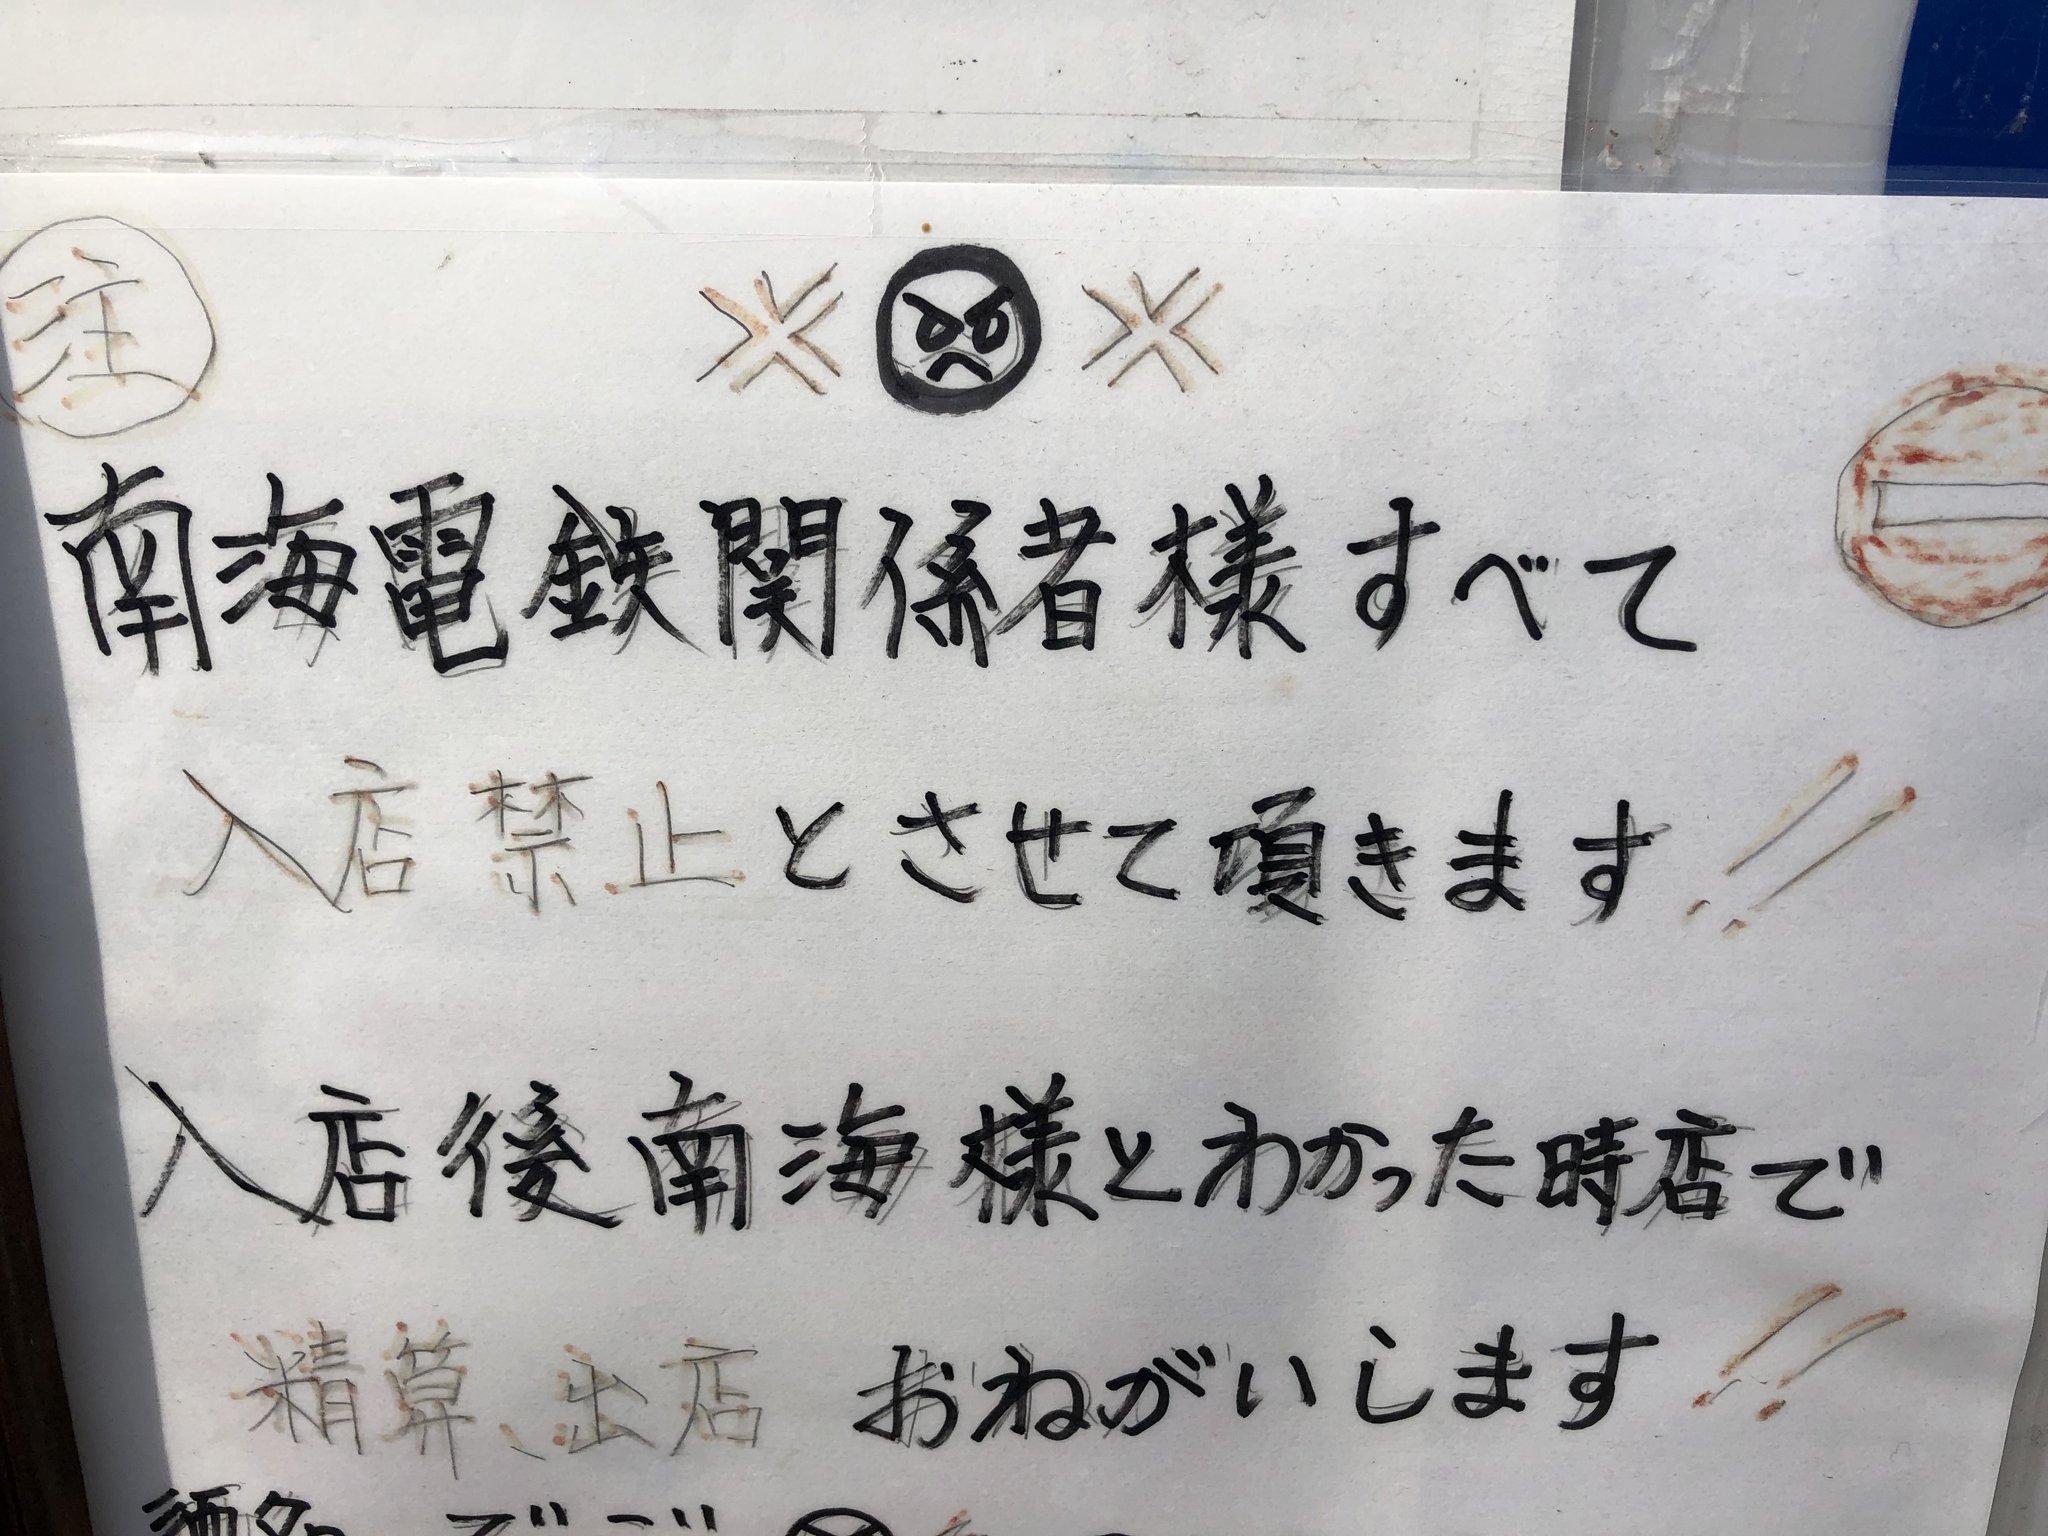 注
南海電鉄関係者様すべて
入店禁止とさせて頂きます!!
入店後南海様とわかった時店で
精算、出店 おねがいします!!